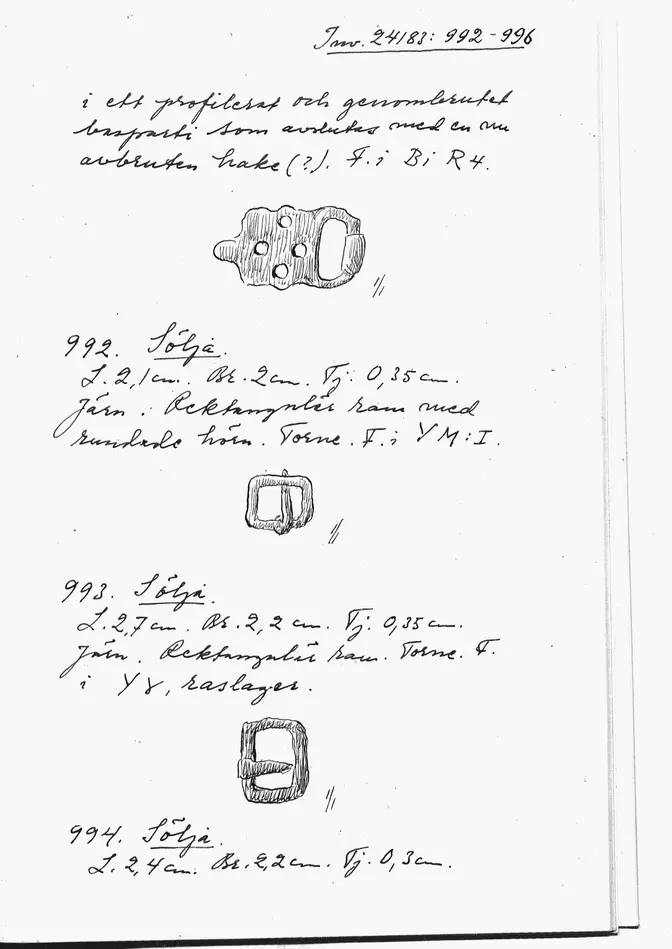 Inv. 24183: 992-996
i ett profilerat och genombrutet
basparti som avslutas med en nu
avbruten hake (?). F. i Bi R4.
1/1
992. Sölja.
L. 2,1 cm. Br. 2 cm. Tj. 0,35 cm.
Järn. Rektangulär ram med
rundade hörn. Torne. F. i YM:I.
1/1
993. Sölja.
L. 2,7 cm. Br. 2,2 cm. Tj. 0,35 cm.
Järn. Rektangulär ram. Torne. F.
i Yγ, raslager.
1/1
994. Sölja.
L. 2,4 cm. Br. 2,2 cm. Tj. 0,3 cm.